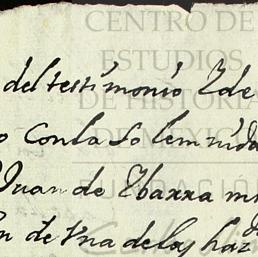 CENTRO DE
ESTUDIOS
DE HISTORIA
DE MEXICO
FUNDACIÓN
del testimonio Y de
o con la solemnida
Juan de Ybarra mi
en de Una de las haz